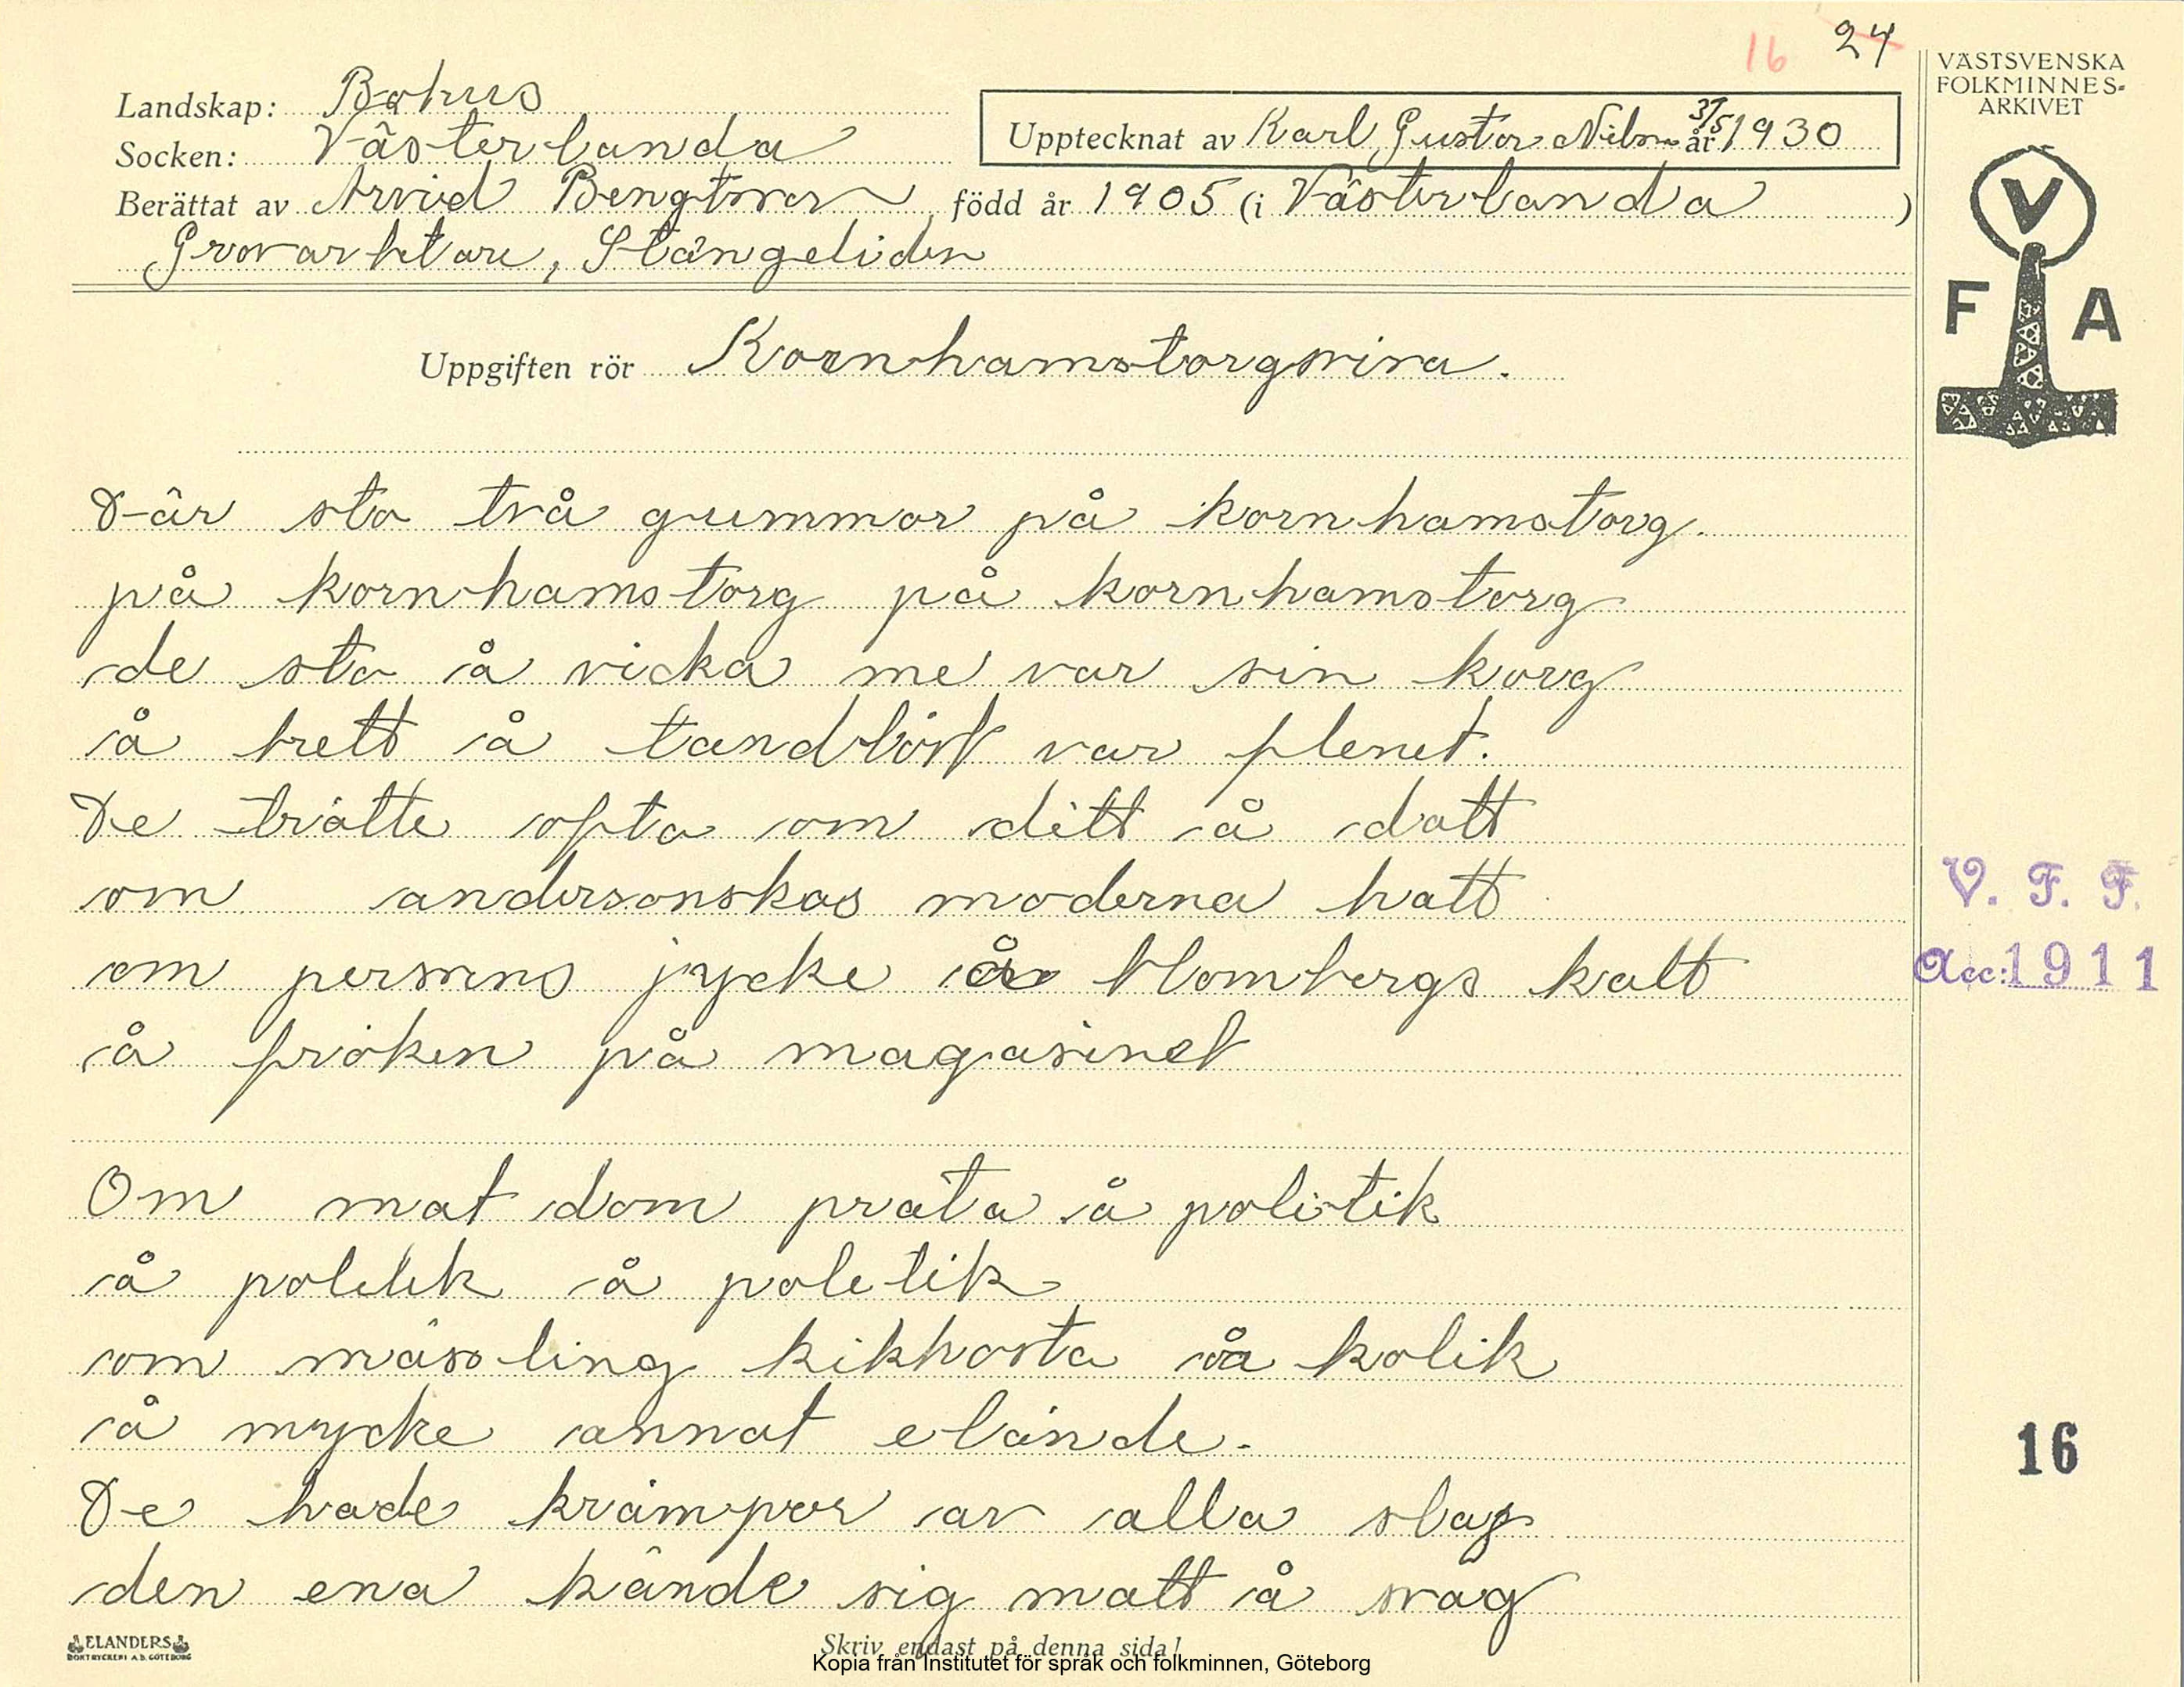 16 24
VÄSTSVENSKA
FOLKMINNES-
ARKIVET
Landskap: Bohus
Socken: Västerlanda
Upptecknat av Karl Gustov Nilson år 31/5 1930
Berättat av Arvid Bengtson, född år 1905 (i Västerlanda)
Grovarbetare, Stängeliden
V
F A
Uppgiften rör Kornhamstorgsvisa.
Där sto två gummor på kornhamstorg.
på kornhamstorg på kornhamstorg
de sto å vicka me var sin korg
å brett å tandlöst var flenet.
De trätte ofta om ditt å datt
om andersonskas moderna hatt
om persons jycke å blombergs katt
å fröken på magasinet
Om mat dom prata å politik
å politik å poletik
om mässling kikhosta å kolik
å mycke annat elände.
De hade krämper av alla slag
den ena kände sig matt å svag
V. F. F.
Acc: 1911
16
ELANDERS
BOKTRYCKERI A.B. GÖTEBORG
Skriv endast på denna sida!
Kopia från Institutet för språk och folkminnen, Göteborg